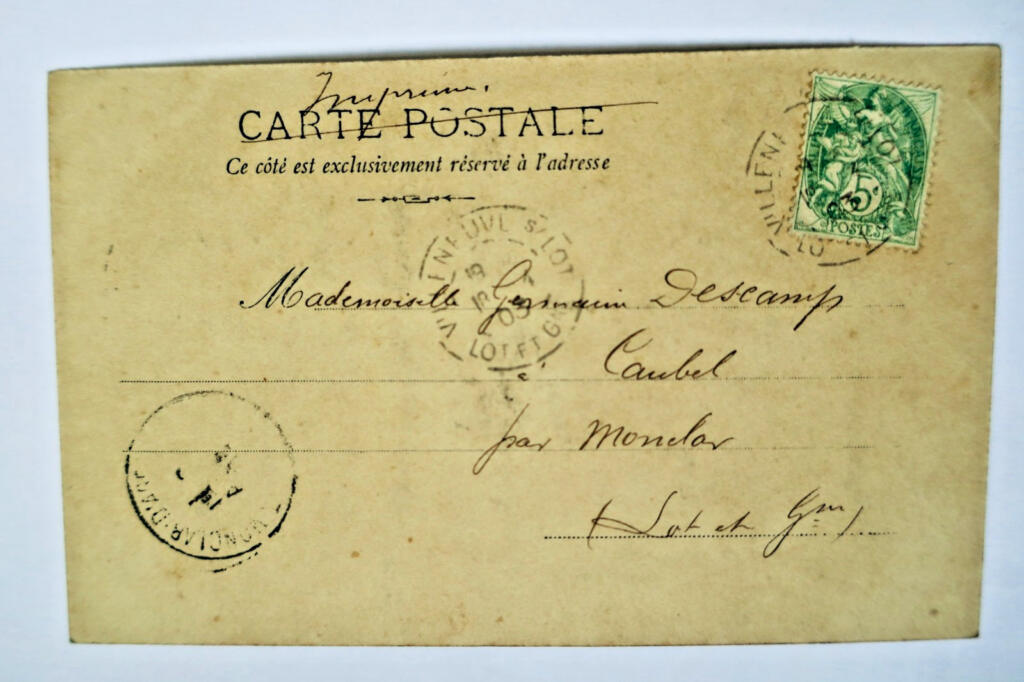 Imprimé.
CARTE POSTALE
Ce côté est exclusivement réservé à l'adresse
5
POSTES
VILLENEUVE S/LOT
05
LOT ET G
Mademoiselle Germaine Descamp
à Caubel
par Monclar
(Lot et Gne)
MONCLAR-D'AG